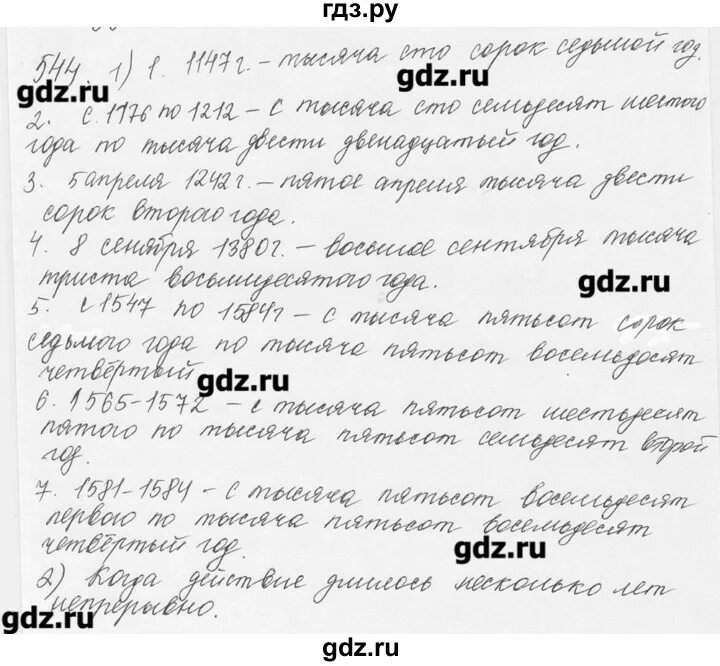 гдз.ру
544. 1) 1. 1147 г. – тысяча сто сорок седьмой год.
gdz.ru
gdz.ru
2. с 1176 по 1212 – с тысяча сто семьдесят шестого
года по тысяча двести двенадцатый год.
3. 5 апреля 1242 г. – пятое апреля тысяча двести
сорок второго года.
4. 8 сенября 1380 г. – восьмое сентября тысяча
триста восьмидесятого года.
gdz.ru
5. с 1547 по 1584 г – с тысяча пятьсот сорок
седьмого года по тысяча пятьсот восемьдосят
четвёртый
gdz.ru
6. 1565-1572 – с тысяча пятьсот шестьдесят
пятого по тысяча пятьсот семьдесят второй
год.
7. 1581-1584 – с тысяча пятьсот восемьдесят
первого по тысяча пятьсот восемьдесят
четвёртый год.
gdz.ru
2) Когда действие длилось несколько лет
непрерывно.
gdz.ru
gdz.ru